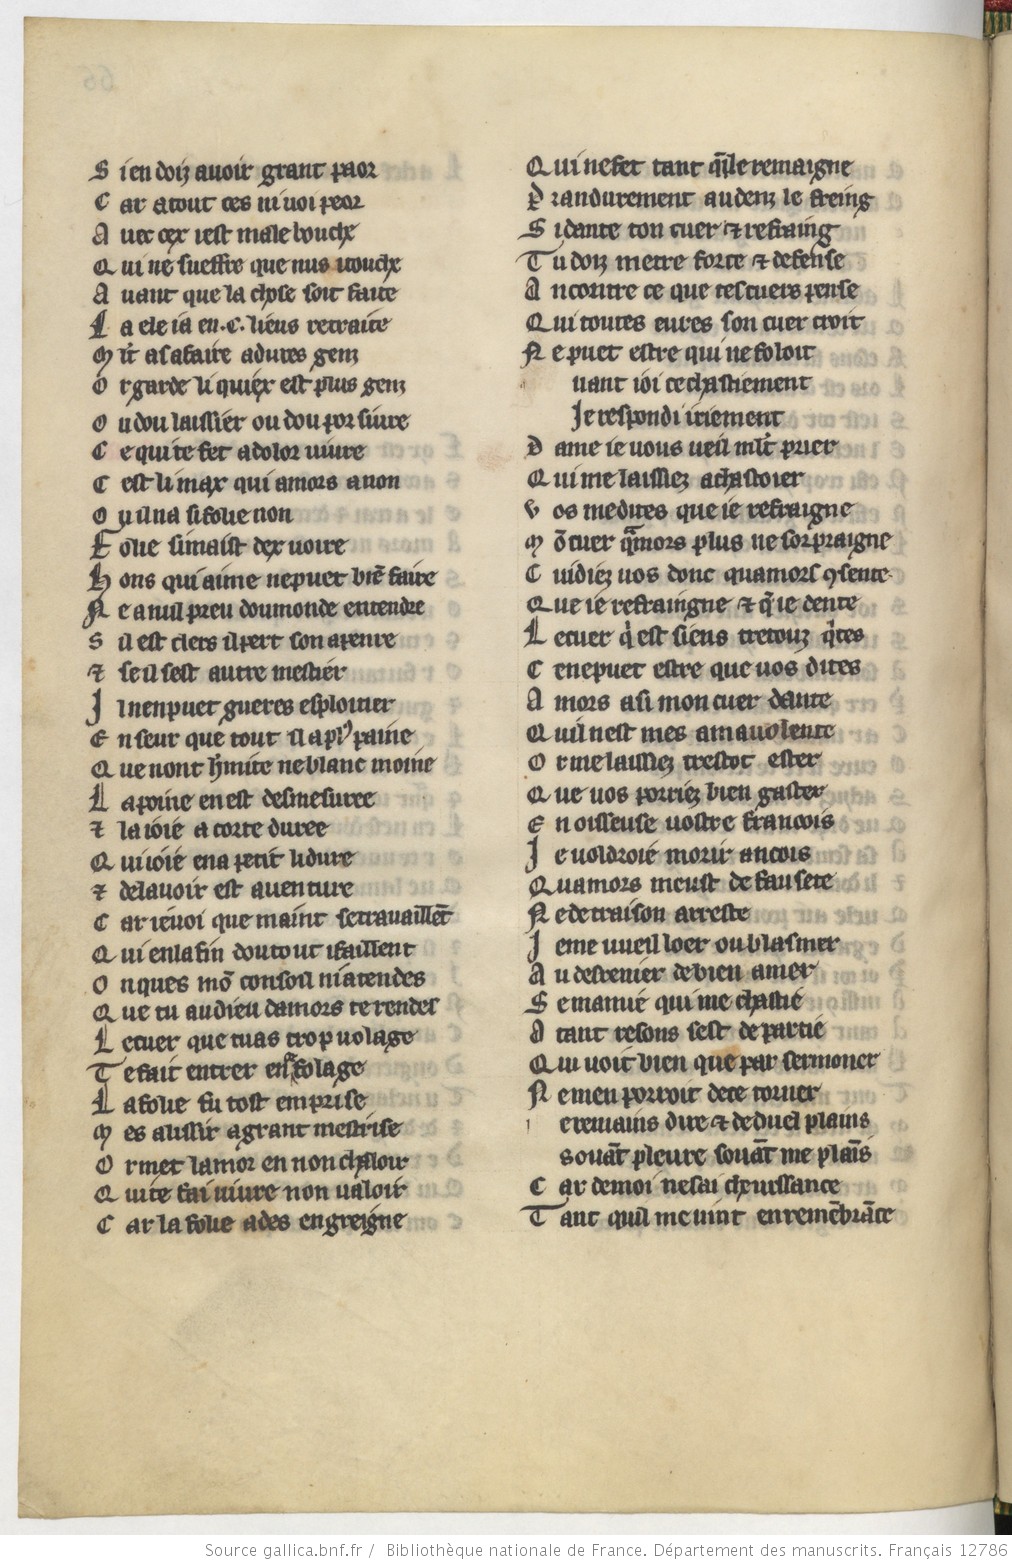 S i en doiz auoir grant paor
C ar a tout ces ni uoi peor
A uec cex iest male bouche
Q ui ne sueffre que nus i touche
A uant que la chose soit faite
L a ele ia en .c. liens retraite
M lt a afaire a dures genz
O r garde li quiex est plus genz
O u dou laissier ou dou por siure
C e qui te fet a dolor uiure
C est li max qui amors a non
O u il na si folie non
F olie si maist dex uoire
H ons qui aime ne puet biē faire
N e a nuil preu dou monde entendre
S il est clers il pert son apenre
⁊ se il fest autre mestier
I l nen puet gueres esploitier
E n seur que tout il a plꝰ paine
Q ue nont hmite ne blanc moine
L a poine en est desmesuree
⁊ la ioie a corte duree
Q ui ioie en a petit li dure
⁊ de lauoir est auenture
C ar ie uoi que maint se trauaillēt
Q ui en la fin dou tout i faillent
O nques mō consoil natendes
Q ue tu au dieu damors te rendes
L e cuer que tu as trop uolage
T e fait entrer en folage
L a folie fu tost emprise
M es a lissir a grant mestrise
O r met lamor en non chaloir
Q ui te fai uiure non ualoir
C ar la folie ades engreigne
Q ui ne fet tant q̄le remaigne
P ran durement au denz le freing
S i dante ton cuer ⁊ refraing
T u doiz metre force ⁊ defense
A ncontre ce que tes cuers pense
Q ui toutes eures son cuer croit
N e puet estre qui ne foloit
uant ioi ce chastiement
Je respondi iriement
D ame ie uous ueil mlt prier
Q ui me laissiez a chastoier
V os me dites que ie refraigne
M ō cuer qamors plus ne sorpraigne
C uidiez uos donc quamors ꝯsente
Q ue ie refraingne ⁊ q̄ ie dente
L e cuer qi est siens tretouz qites
C e ne puet estre que uos dites
A mors a si mon cuer dante
Q uil nest mes a ma uolente
O r me laissiez trestot ester
Q ue uos porriez bien gaster
E n oisseuse uostre francois
J e uoldroie morir ancois
Q uamors meust de fausete
N e de traison arreste
J e me uueil loer ou blasmer
A u desrenier de bien amer
S e manuie qui me chastie
A tant resons sest departie
Q ui uoit bien que par sermoner
N e men porroit de ce torner
e remains dire ⁊ de duel plains
souāt pleure souāt me plaīs
C ar de moi ne sai cheuissance
T ant quil me uint en remēbrāce